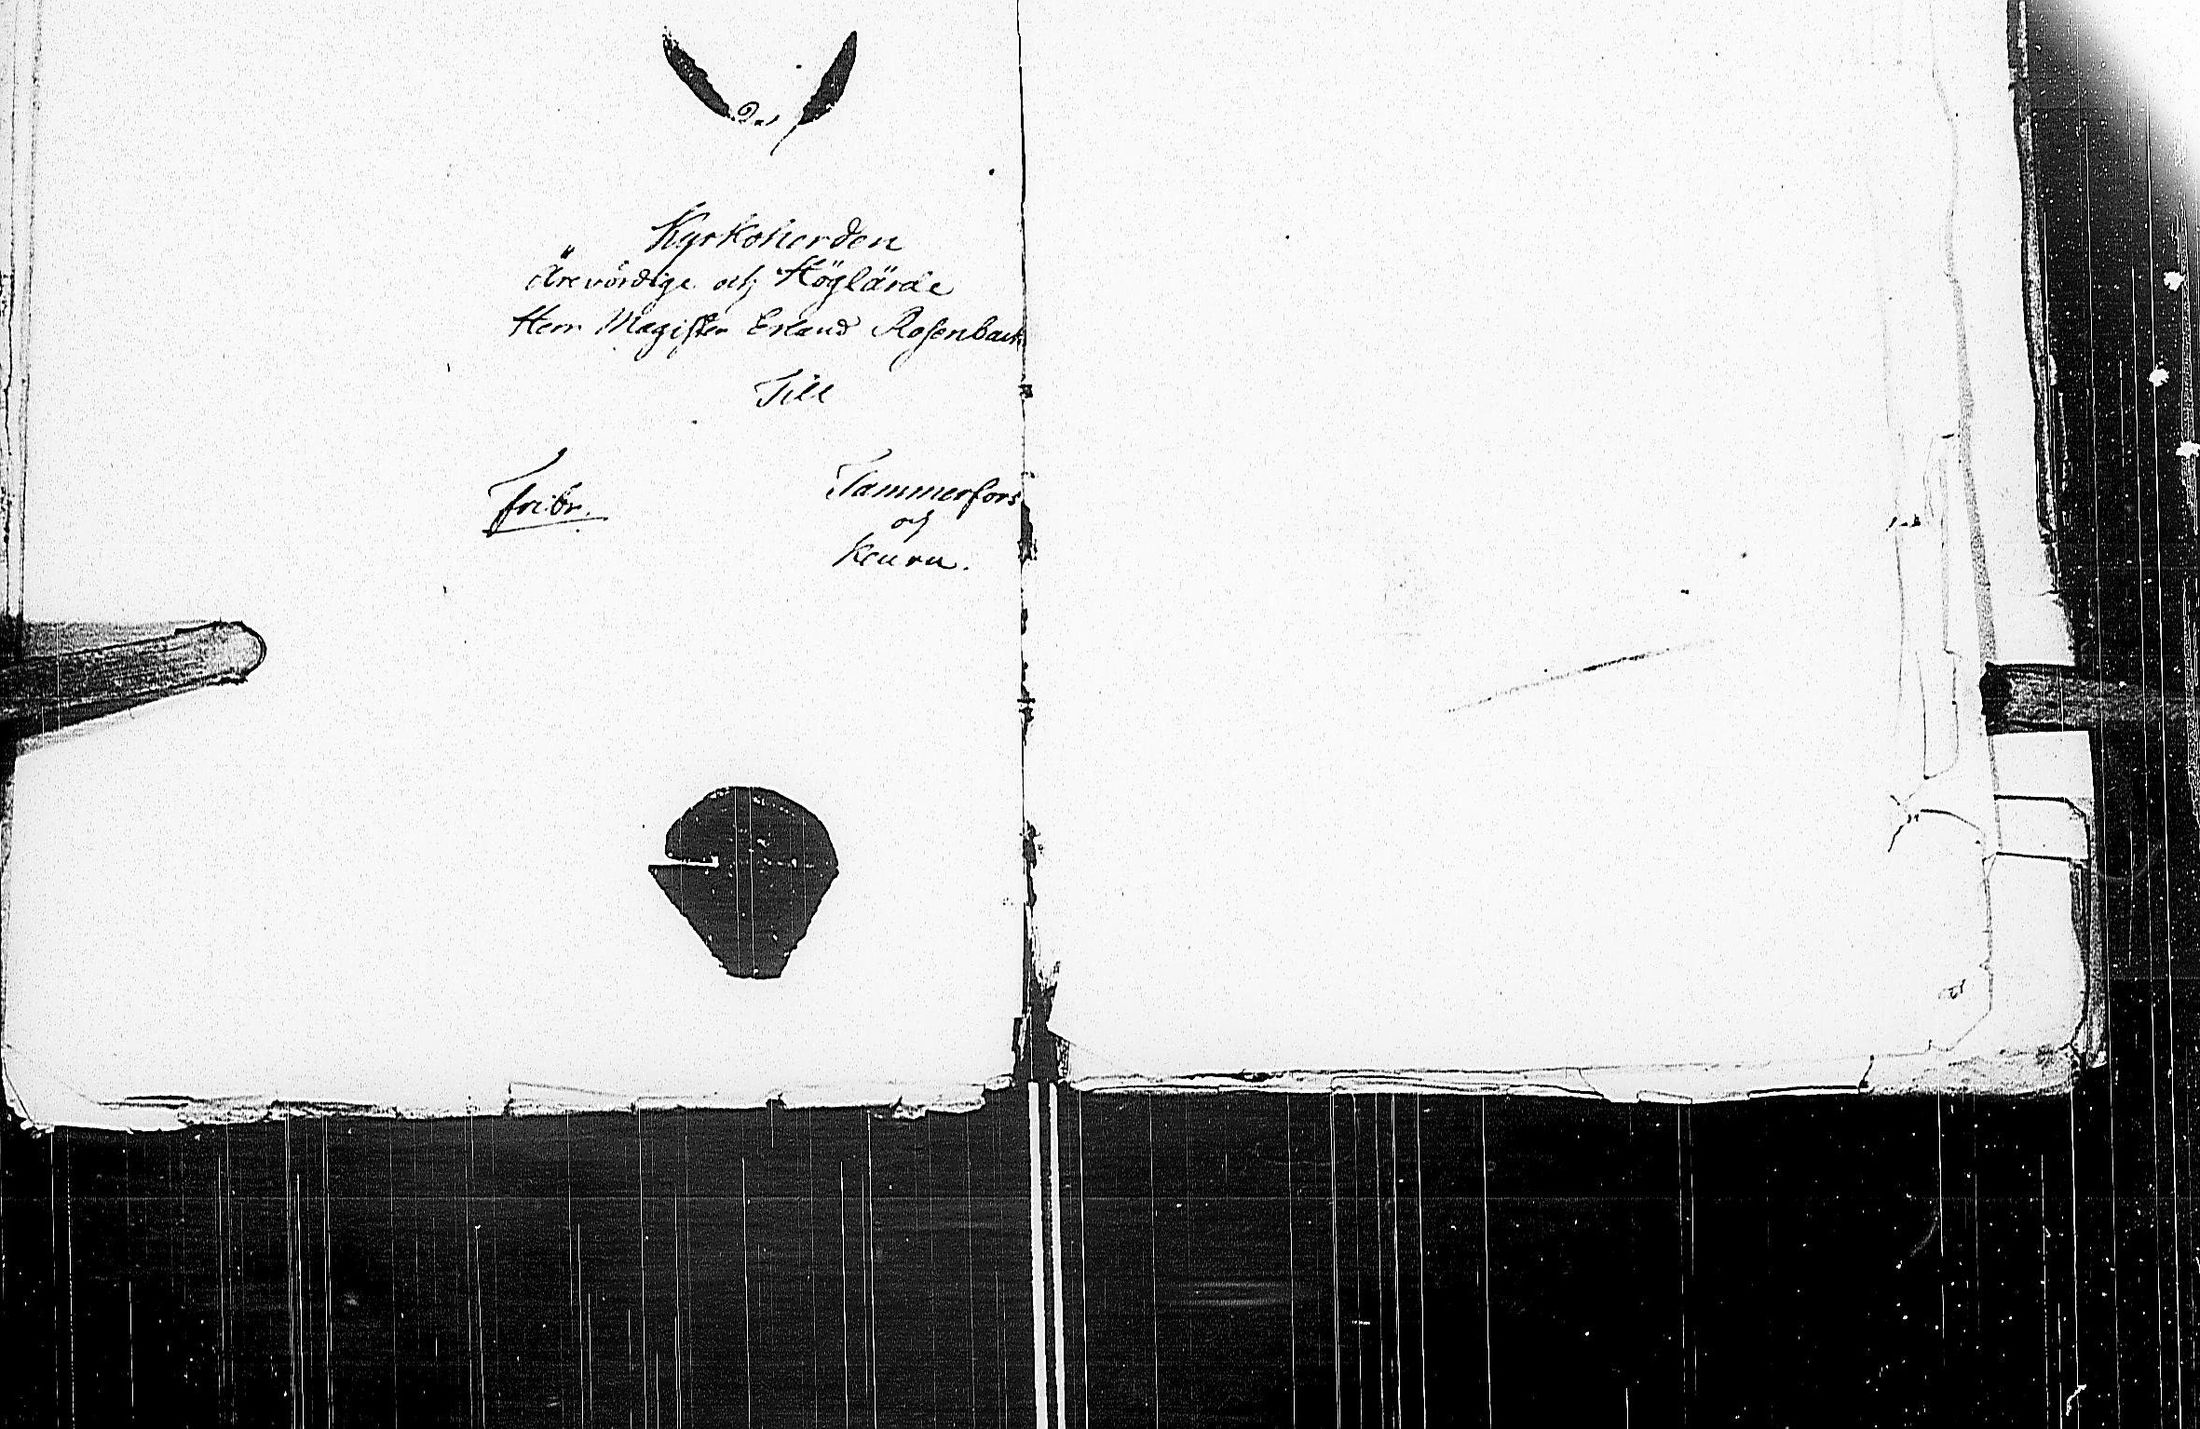 Kyrkoherden
Ärevördige och Höglärde
Herr Magister Erland Rosenback
Till
Fribr.
Tammerfors
och
Keuru.